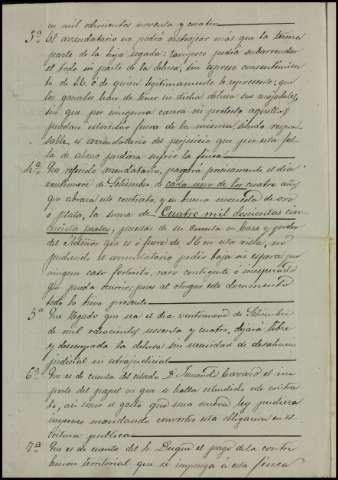 en mil ochocientos noventa y cuatro
3ª El arrendatario no podrá destrozar más que la tercera
parte de la hoja segada: tampoco podrá subarrendar
el todo ni parte de la dehesa, sin expreso consentimiento
de SE o de quien legítimamente le represente; que
los ganados han de tener en dicha dehesa sus majadales,
sin que por ninguna causa ni pretexto
puedan estercolar fuera de la misma, siendo respon
sable, el arrendatario del perjuicio que por esta fal
ta de abono pudiera sufrir la finca
4ª Que referido arrendatario, pagará precisamente el día
veintinueve de Setiembre de cada uno de los cuatro años
que abraza este contrato, y en buena moneda de oro
o plata, la suma de Cuatro mil doscientas cin
cuenta pesetas, puestas de su cuenta en casa y poder
del Admor que es o fuere de SE en esta villa, no
pudiendo el arrendatario pedir baja ni espera por
ningun caso fortuito, raro contingente o inesperado
que pueda ocurrir, pues al otorgar este documento
todo lo tiene presente
5ª Que llegado que sea el día veintinueve de Setiembre
de mil ochocientos noventa y cuatro, dejará libre
y desocupada la dehesa sin necesidad de desahucio
judicial ni extrajudicial
6ª Que es de cuenta del citado Dn el im
porte del papel en que se halla estendido este contra
to, así como el gasto que una nueva ley pudiera
imponer mandando convertir esta obligacion en es
critura publica
7ª Que es de cuenta del Sr Duque el pago de la contri
bucion territorial que se imponga a esta finca